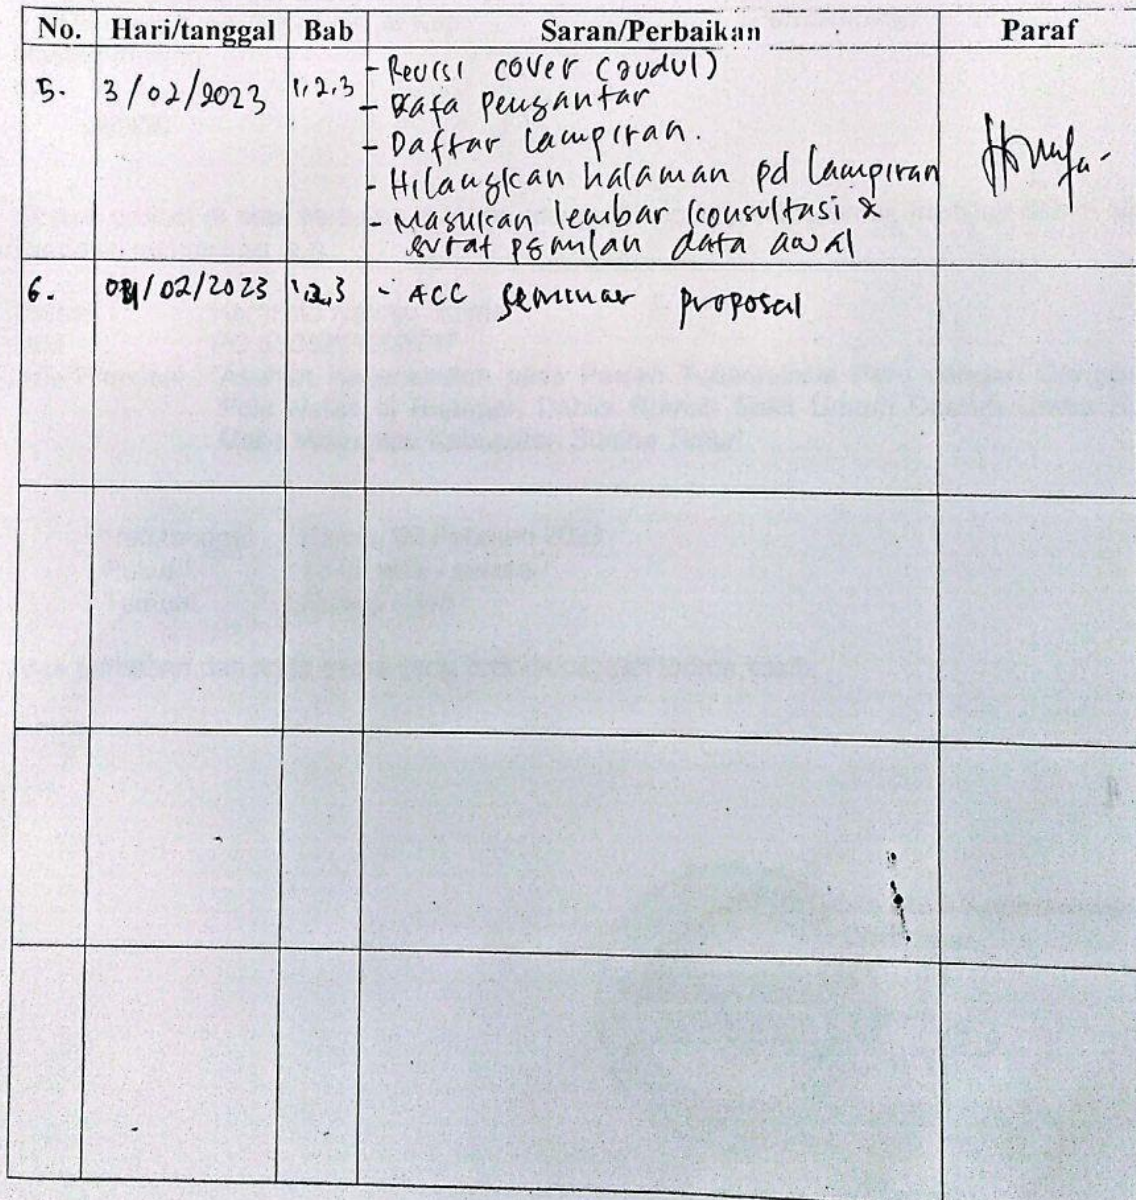 No. Hari/tanggal Bab Saran/Perbaikan Paraf
5. 3/02/2023 1,2,3 - Revisi cover (Judul)
- Kata pengantar
- Daftar lampiran.
- Hilangkan halaman pd lampiran
- Masukan lembar konsultasi &
surat data awal
6. /02/2023 1,2,3 - ACC seminar proposal